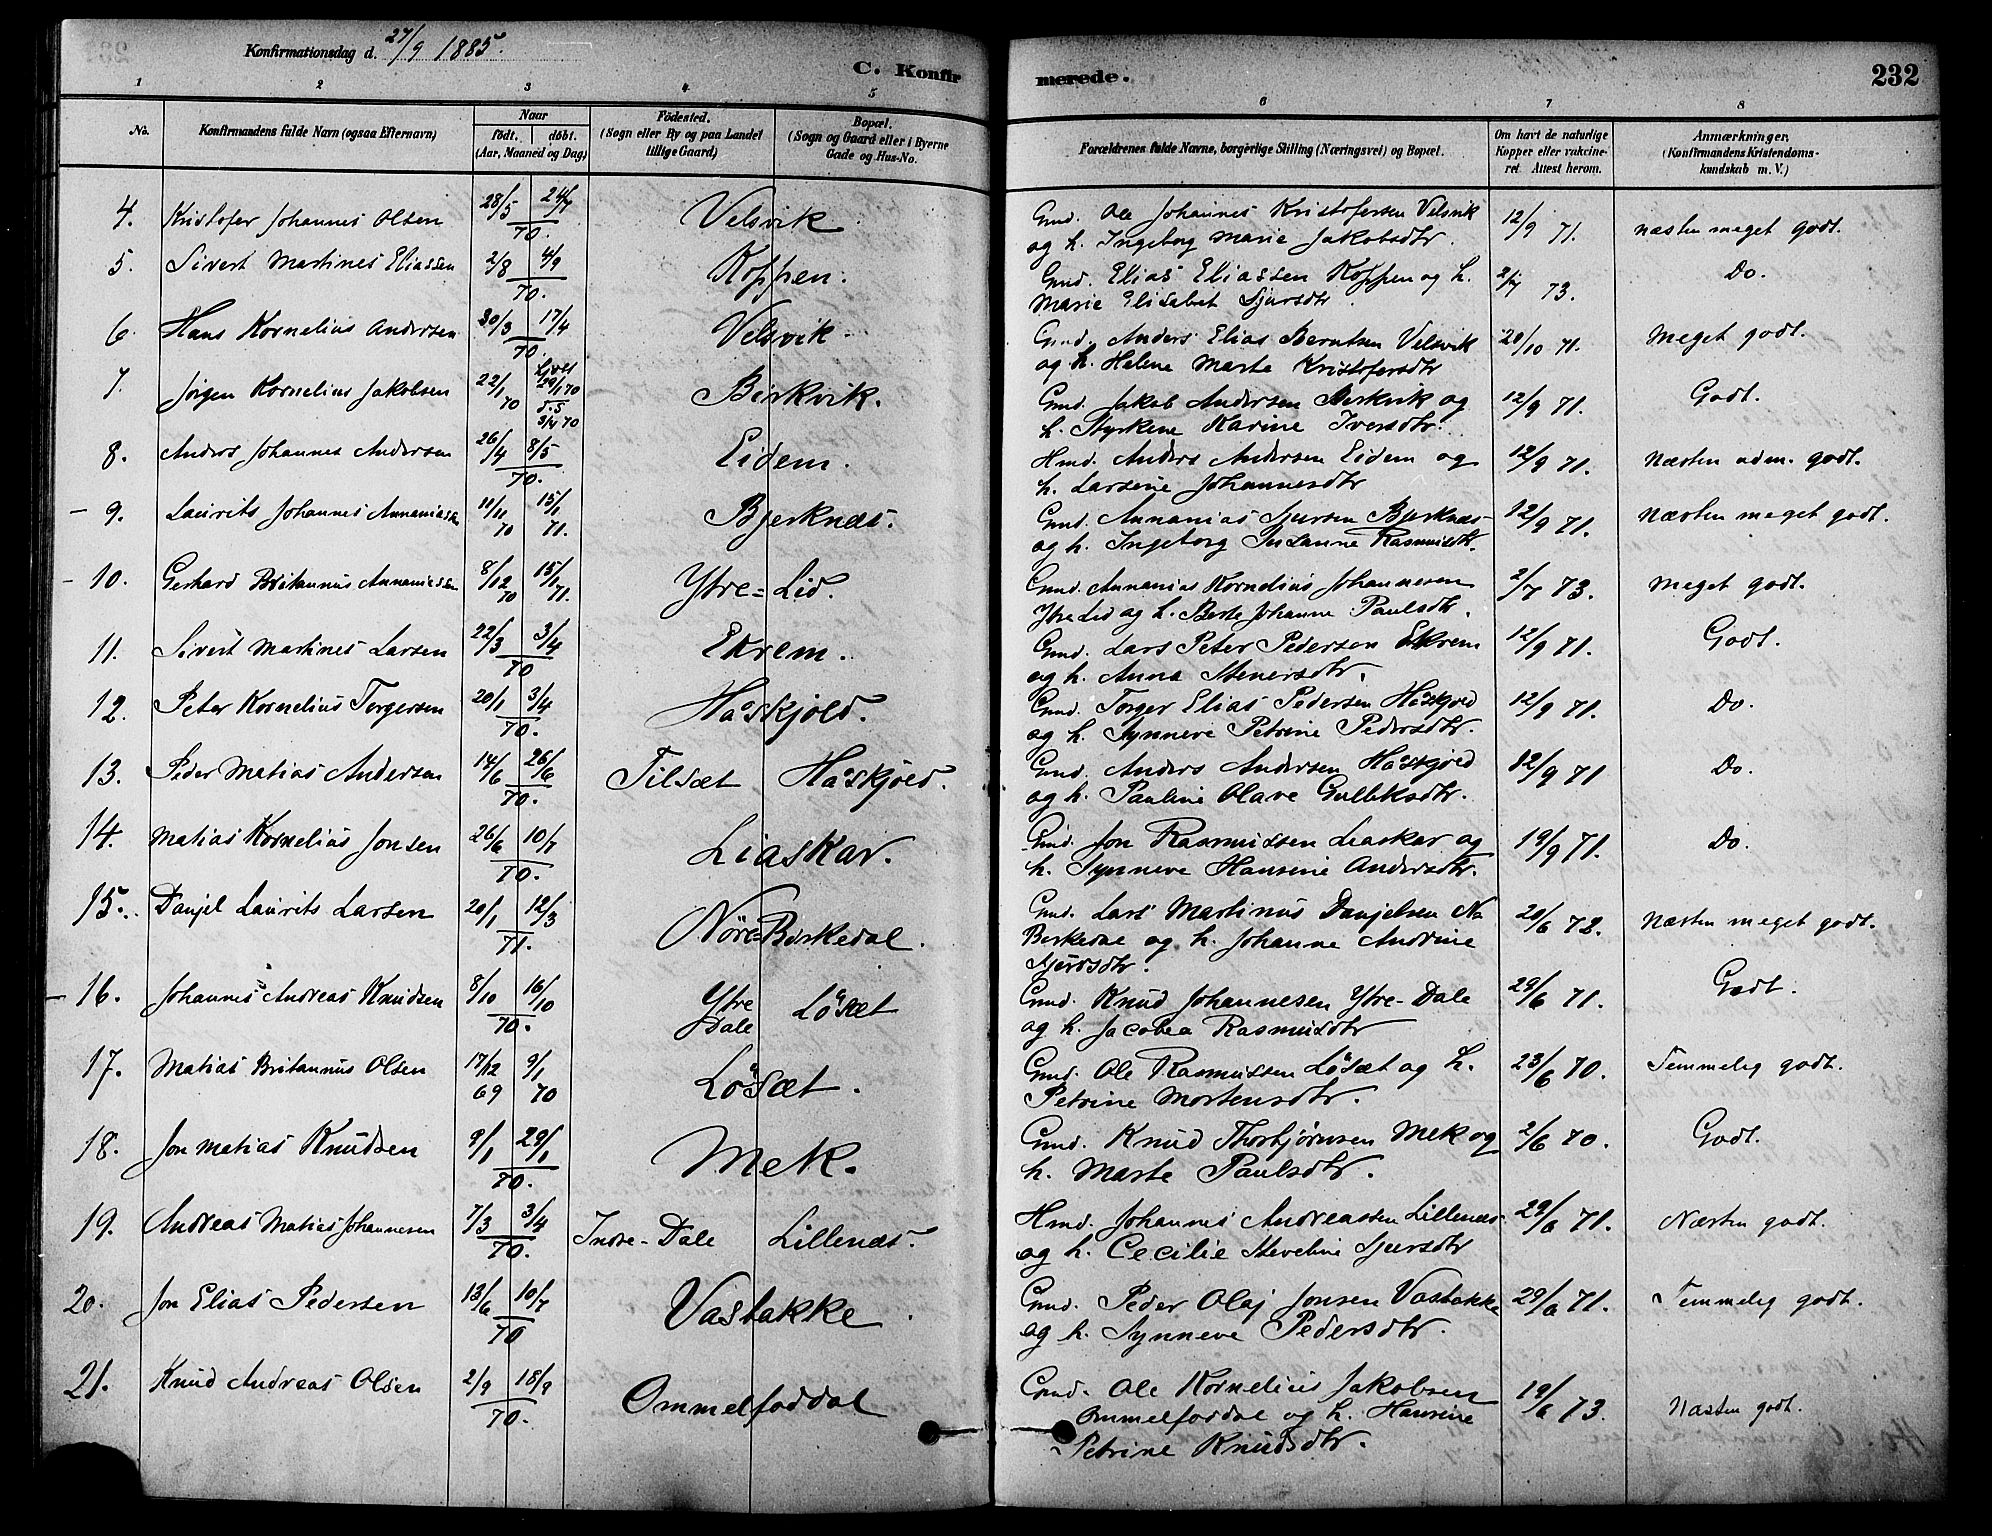 Konfirmationsdag d. 27/9 1885.
C. Konfir
merede.
232
1 2 3 4 5 6 7 8
No.
Konfirmandens fulde Navn (ogsaa Efternavn)
Naar
født. døbt.
(Aar, Maaned og Dag)
Fødested.
(Sogn eller By og paa Landet
tillige Gaard)
Bopæl.
(Sogn og Gaard eller i Byerne
Gade og Hus-No.
Forældrenes fulde Navne, borgerlige Stilling (Næringsvei) og Bopæl.
Om havt de naturlige
Kopper eller vakcine-
ret Attest herom.
Anmærkninger,
(Konfirmandens Kristendoms-
kundskab m. V.)
4. Kristofer Johannes Olsen 28/5 24/7 70. Velsvik Gmd. Ole Johannes Kristofersen Velsvik 12/9 71. næsten meget godt.
og h. Ingeborg Marie Jakobsdtr.
5. Sivert Martines Eliassen 2/8 4/9 70. Koppen. Gmd. Elias Eliassen Koppen og h. 2/7 73. Do.
Marie Elisabet Sjursdtr.
6. Hans Kornelius Andersen 30/3 17/4 70. Velsvik. Gmd. Anders Elias Berntsen Velsvik 20/10 71. Meget godt.
og h. Helene Marte Kristofersdtr
7. Jørgen Kornelius Jakobsen 22/1 70 29/1 70 3/4 70 Birkvik. Gmd. Jakob Andersen Birkvik og 12/9 71. Godt.
h. Styrkene Karine Iversdtr.
8. Anders Johannes Andersen 26/4 8/5 70. Eidem. Hmd. Anders Andersen Eidem og 12/9 71. Næsten udm. godt.
h. Larsine Johannesdtr
- 9. Laurits Johannes Annaniassen 11/11 70 15/1 71. Bjerknæs. Gmd. Annanias Sjursen Bjerknæs 12/9 71. Næsten meget godt.
og h. Ingeborg Susanne Rasmusdtr.
- 10. Gerhard Britannus Annaniassen 8/12 70 15/1 71. Ytre=Lid. Gmd. Annanias Kornelius Johannesen 2/7 73. Meget godt.
Ytre Lid og h. Berte Johanne Paulsdtr.
11. Sivert Martines Larsen 22/3 3/4 70 Ekrem. Gmd. Lars Peter Pedersen Ekrem 12/9 71. Godt.
og h. Anna Stenersdtr.
12. Peter Kornelius Torgersen 20/1 3/4 70. Håskjold. Gmd. Torger Elias Pedersen Håskjold 12/9 71. Do.
og h. Synneve Petrine Pedersdtr.
13. Peder Matias Andersen 14/6 26/6 70. Tilsæt Håskjold. Gmd. Anders Andersen Håskjold 12/9 71 Do
og h. Pauline Olave Gulliksdtr.
14. Matias Kornelius Jonsen 26/6 10/7 70. Liaskar. Gmd. Jon Rasmussen Liaskar og 19/9 71. Do.
h. Synneve Hansine Andersdtr.
15. Danjel Laurits Larsen 20/1 12/3 71. Nøre=Birkedal. Gmd. Lars Martinus Danjelsen Nø 20/6 72. Næsten meget godt.
Birkedal og h. Johanne Andrine
Sjursdtr.
- 16. Johannes Andreas Knudsen 8/10 16/10 70. Ytre Dale Løsæt Gmd. Knud Johannesen Ytre-Dale 29/6 71. Godt.
og h. Jacobea Rasmusdtr
17. Matias Britannus Olsen 17/12 69 9/1 70 Løsæt. Gmd. Ole Rasmussen Løsæt og h. 23/6 70. Temmelig godt.
Petrine Mortensdtr.
18. Jon Matias Knudsen 9/1 29/1 70. Mek. Gmd. Knud Thorbjørnsen Mek og 2/6 70. Godt.
h. Marte Paulsdtr.
19. Andreas Matias Johannesen 7/3 3/4 70. Indre-Dale Lillenæs. Hmd. Johannes Andreassen Lillenæs 29/6 71. Næsten godt.
og h. Cecilie Steveline Sjursdtr
20. Jon Elias Pedersen 13/6 10/7 70 Vasbakke Gmd. Peder Olaj Jonsen Vasbakke 29/6 71. Temmelig godt.
og h. Synneve Pedersdtr.
21. Knud Andreas Olsen 2/9 18/9 70. Ommelfoddal Gmd. Ole Kornelius Jakobsen 19/6 73. Næsten godt.
Ommelfoddal og h. Hansine
Petrine Knudsdtr.